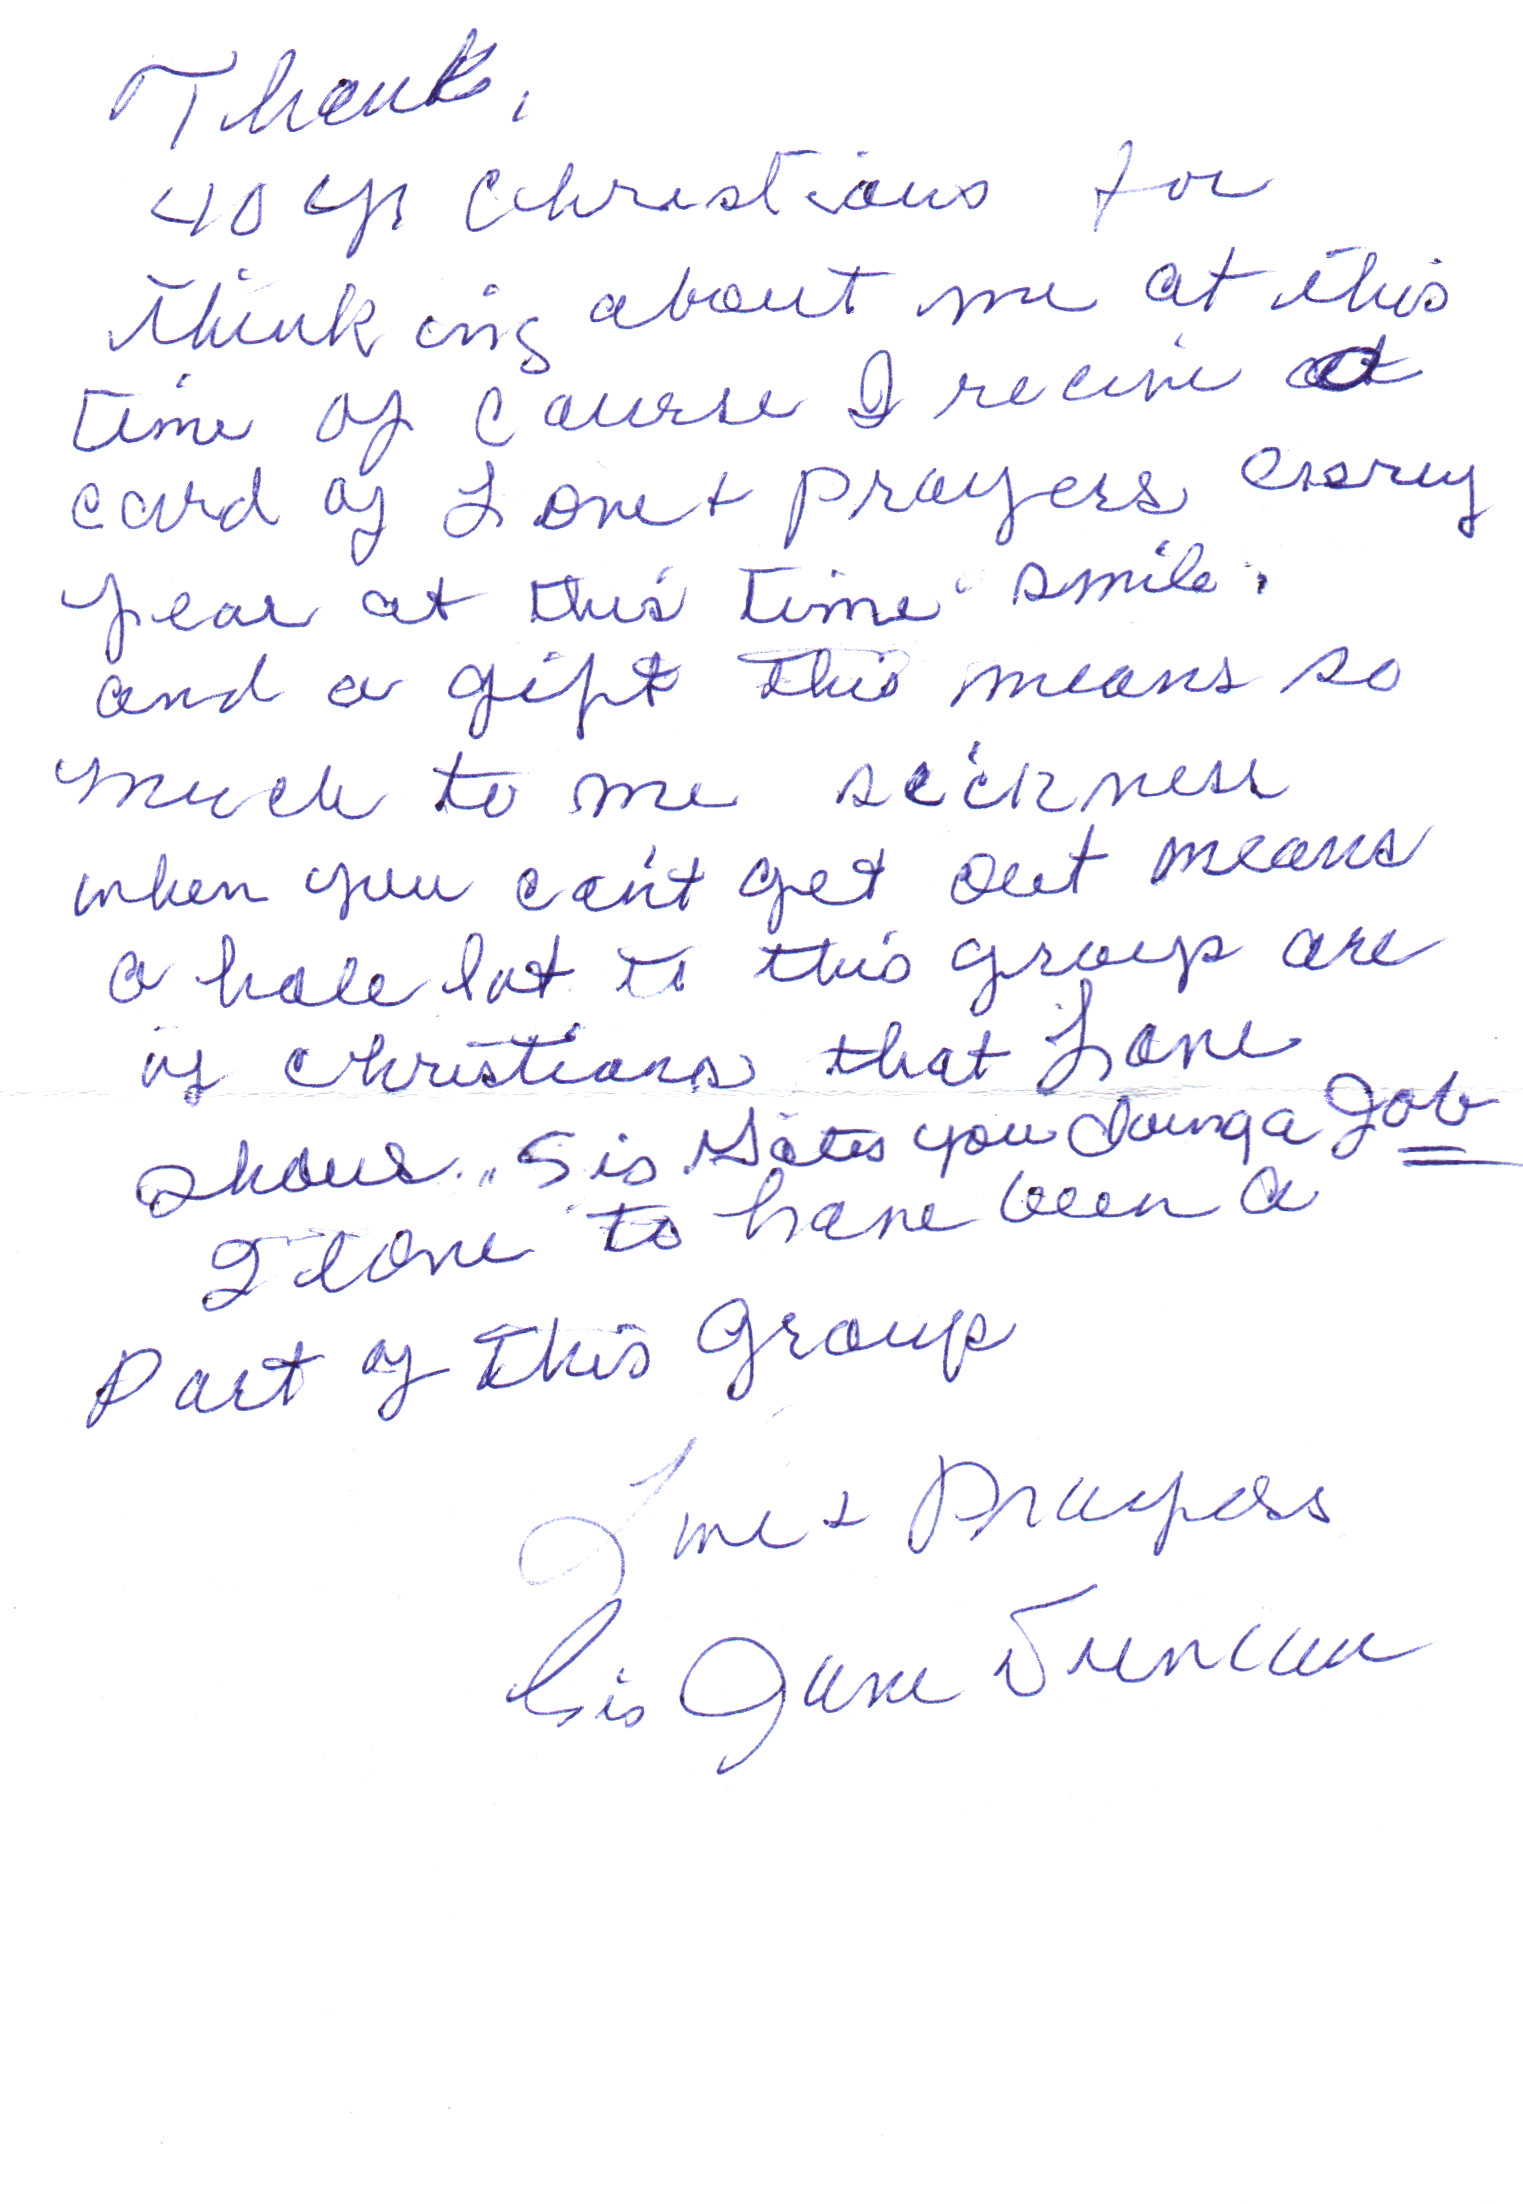 Thank,
40 yr Christians for
thinking about me at this
time of course I receive a
card of Love + prayers every
year at this time smile.
and a gift this means so
much to me sickness
when you can't get out means
a hole lot to this group are
of christians that Love
shows.. Sis Gates you doing a Job
I love to have been a
part of this Group
Love + Prayers
Sis Jane Duncan